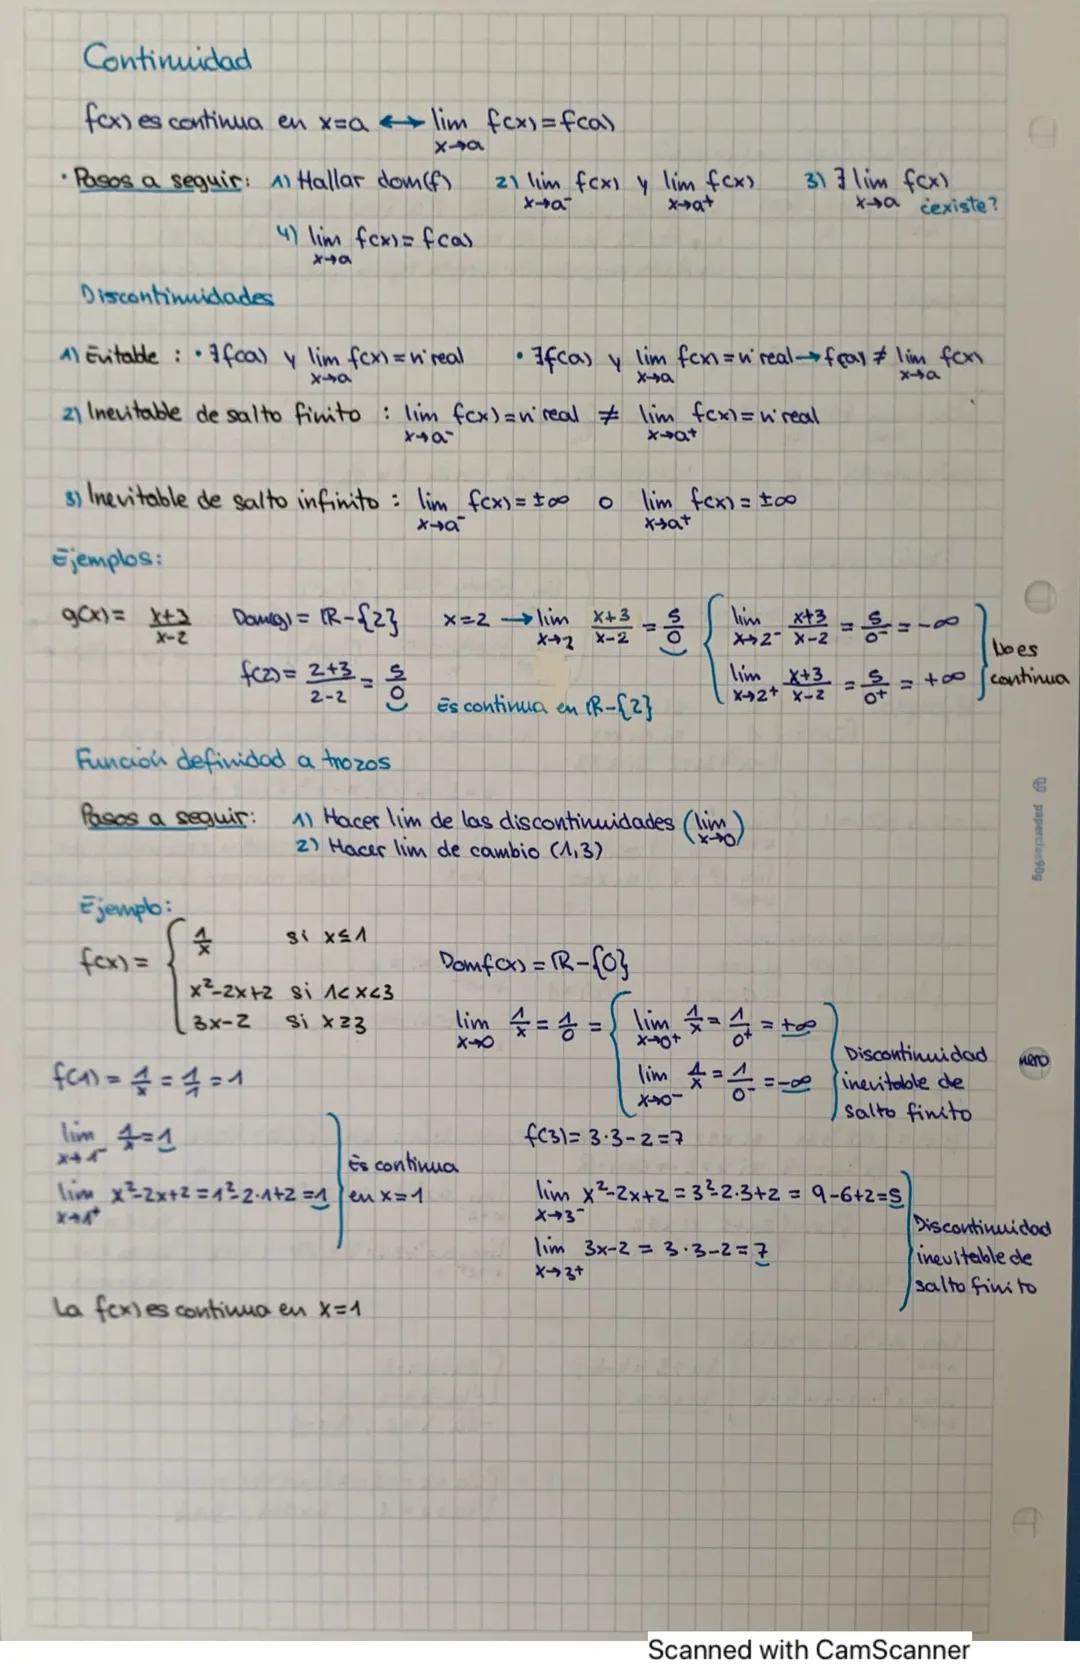 Continuidad
f(x) es continua en x=a ↔ lim x→a f(x)=f(a)
· Pasos a seguir: 1) Hallar dom(f) 2) lim x→a⁻ f(x) y lim x→a⁺ f(x) 3) ∃ lim x→a f(x) ¿existe?
4) lim x→a f(x)=f(a)
Discontinuidades
1) Evitable : · ∃f(a) y lim x→a f(x)=nº real · ∃f(a) y lim x→a f(x)=nº real→f(a) ≠ lim x→a f(x)
2) Inevitable de salto finito : lim x→a⁻ f(x)=nº real ≠ lim x→a⁺ f(x)=nº real
3) Inevitable de salto infinito : lim x→a⁻ f(x)=±∞ o lim x→a⁺ f(x)=±∞
Ejemplos:
g(x)= x+3/x-2 Dom(g)=ℝ-{2} x=2 → lim x→2 x+3/x-2 = 5/0 { lim x→2⁻ x+3/x-2 = 5/0⁻ = -∞
f(2)= 2+3/2-2 = 5/0 Es continua en ℝ-{2} lim x→2⁺ x+3/x-2 = 5/0⁺ = +∞ } No es continua
Función definidad a trozos
Pasos a seguir: 1) Hacer lim de las discontinuidades (lim x→0)
2) Hacer lim de cambio (1,3)
Ejemplo:
f(x)= { 1/x si x≤1
x²-2x+2 si 1<x<3
3x-2 si x≥3
Domf(x)=ℝ-{0}
lim x→0 1/x = 1/0 = { lim x→0⁺ 1/x = 1/0⁺ = +∞
lim x→0⁻ 1/x = 1/0⁻ = -∞ } Discontinuidad inevitable de salto finito
f(1)= 1/x = 1/1 = 1
lim x→1⁻ 1/x=1
lim x→1⁺ x²-2x+2=1²-2·1+2=1 } Es continua en x=1
f(3)= 3·3-2=7
lim x→3⁻ x²-2x+2=3²-2·3+2 = 9-6+2=5
lim x→3⁺ 3x-2 = 3·3-2=7 } Discontinuidad inevitable de salto finito
La f(x) es continua en x=1
Scanned with CamScanner